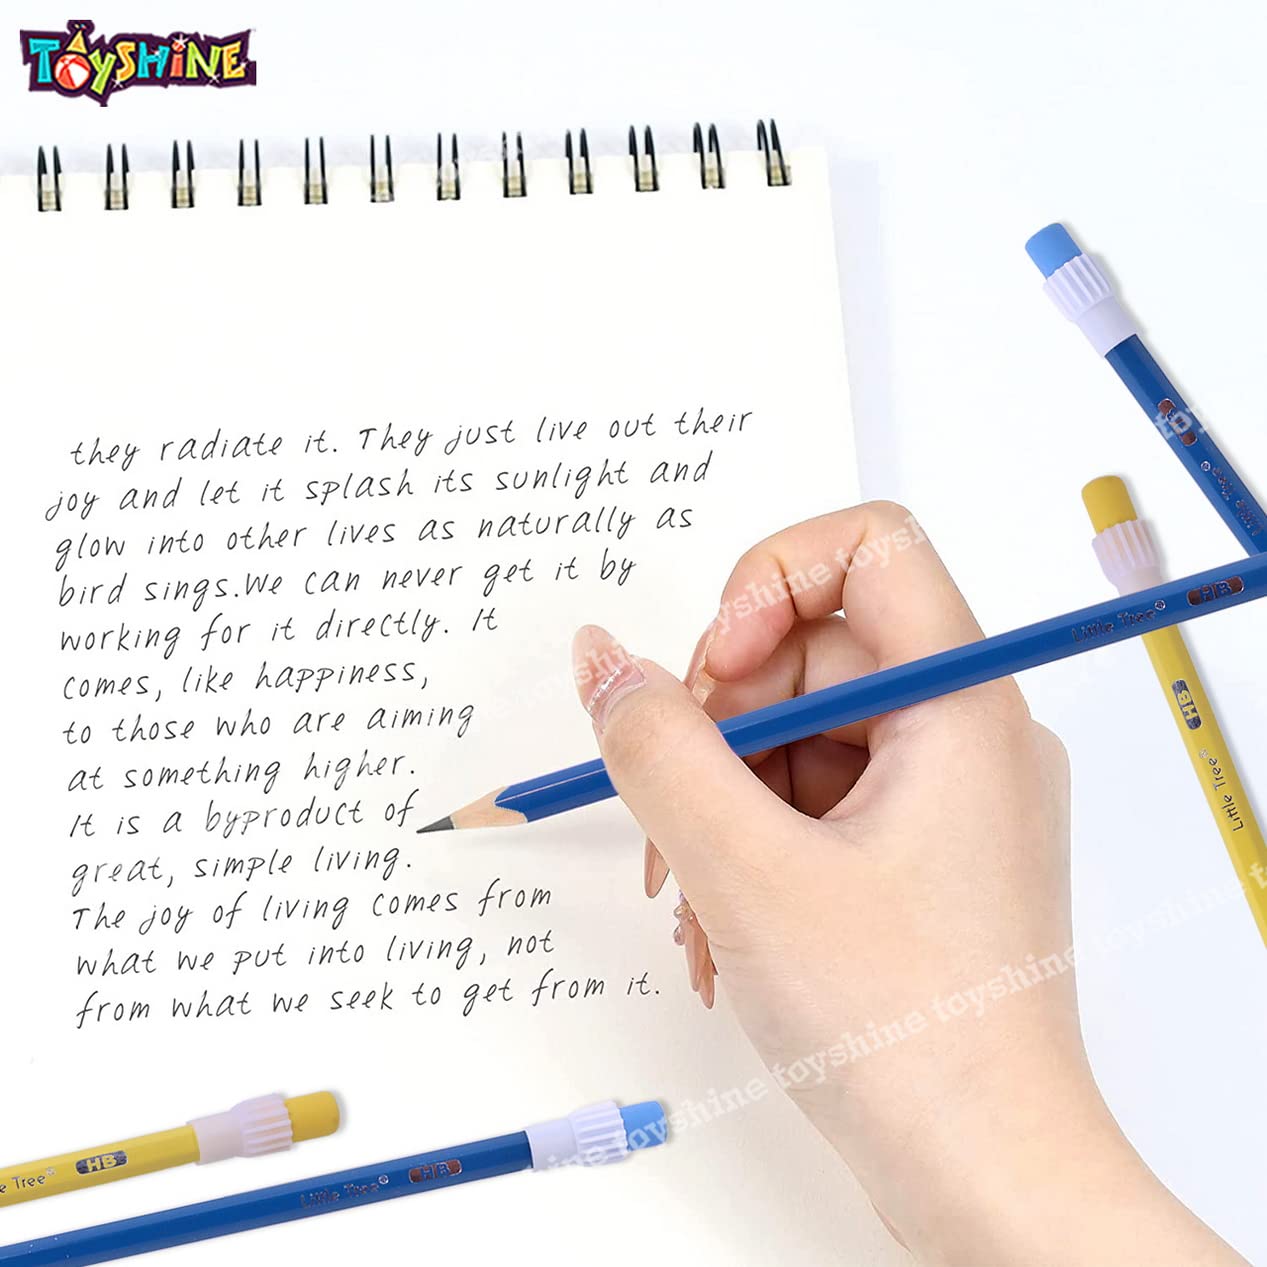 TOYSHINE
they radiate it. They just live out their
joy and let it splash its sunlight and
glow into other lives as naturally as
bird sings.We can never get it by
working for it directly. It
comes, like happiness,
to those who are aiming
at something higher.
It is a byproduct of
great, simple living.
The joy of living comes from
what we put into living, not
from what we seek to get from it.
Little Tree® HB
HB
Little Tree®
le Tree® HB
Little Tree® HB
toyshine toyshine toyshine
toyshine toyshine toyshine toyshine